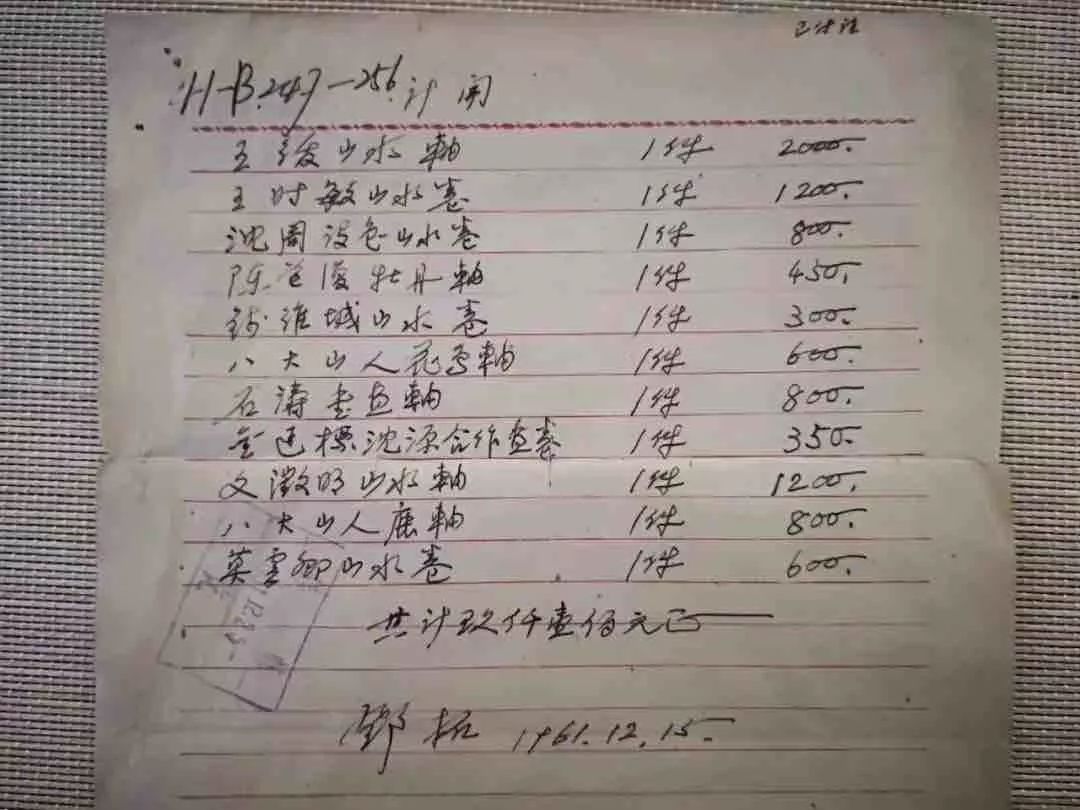 H-B.247-256. 计开
王绂山水轴 1件 2000.
王时敏山水卷 1件 1200.
沈周设色山水卷 1件 800.
陈道复牡丹軸 1件 450.
钱维城山水卷 1件 300.
八大山人花鸟軸 1件 600.
石涛画軸 1件 800.
金廷標沈源合作画卷 1件 350.
文徵明山水軸 1件 1200.
八大山人鹿軸 1件 800.
莫雲卿山水卷 1件 600.
共计玖仟壹佰元正
鄧拓 1961.12.15.